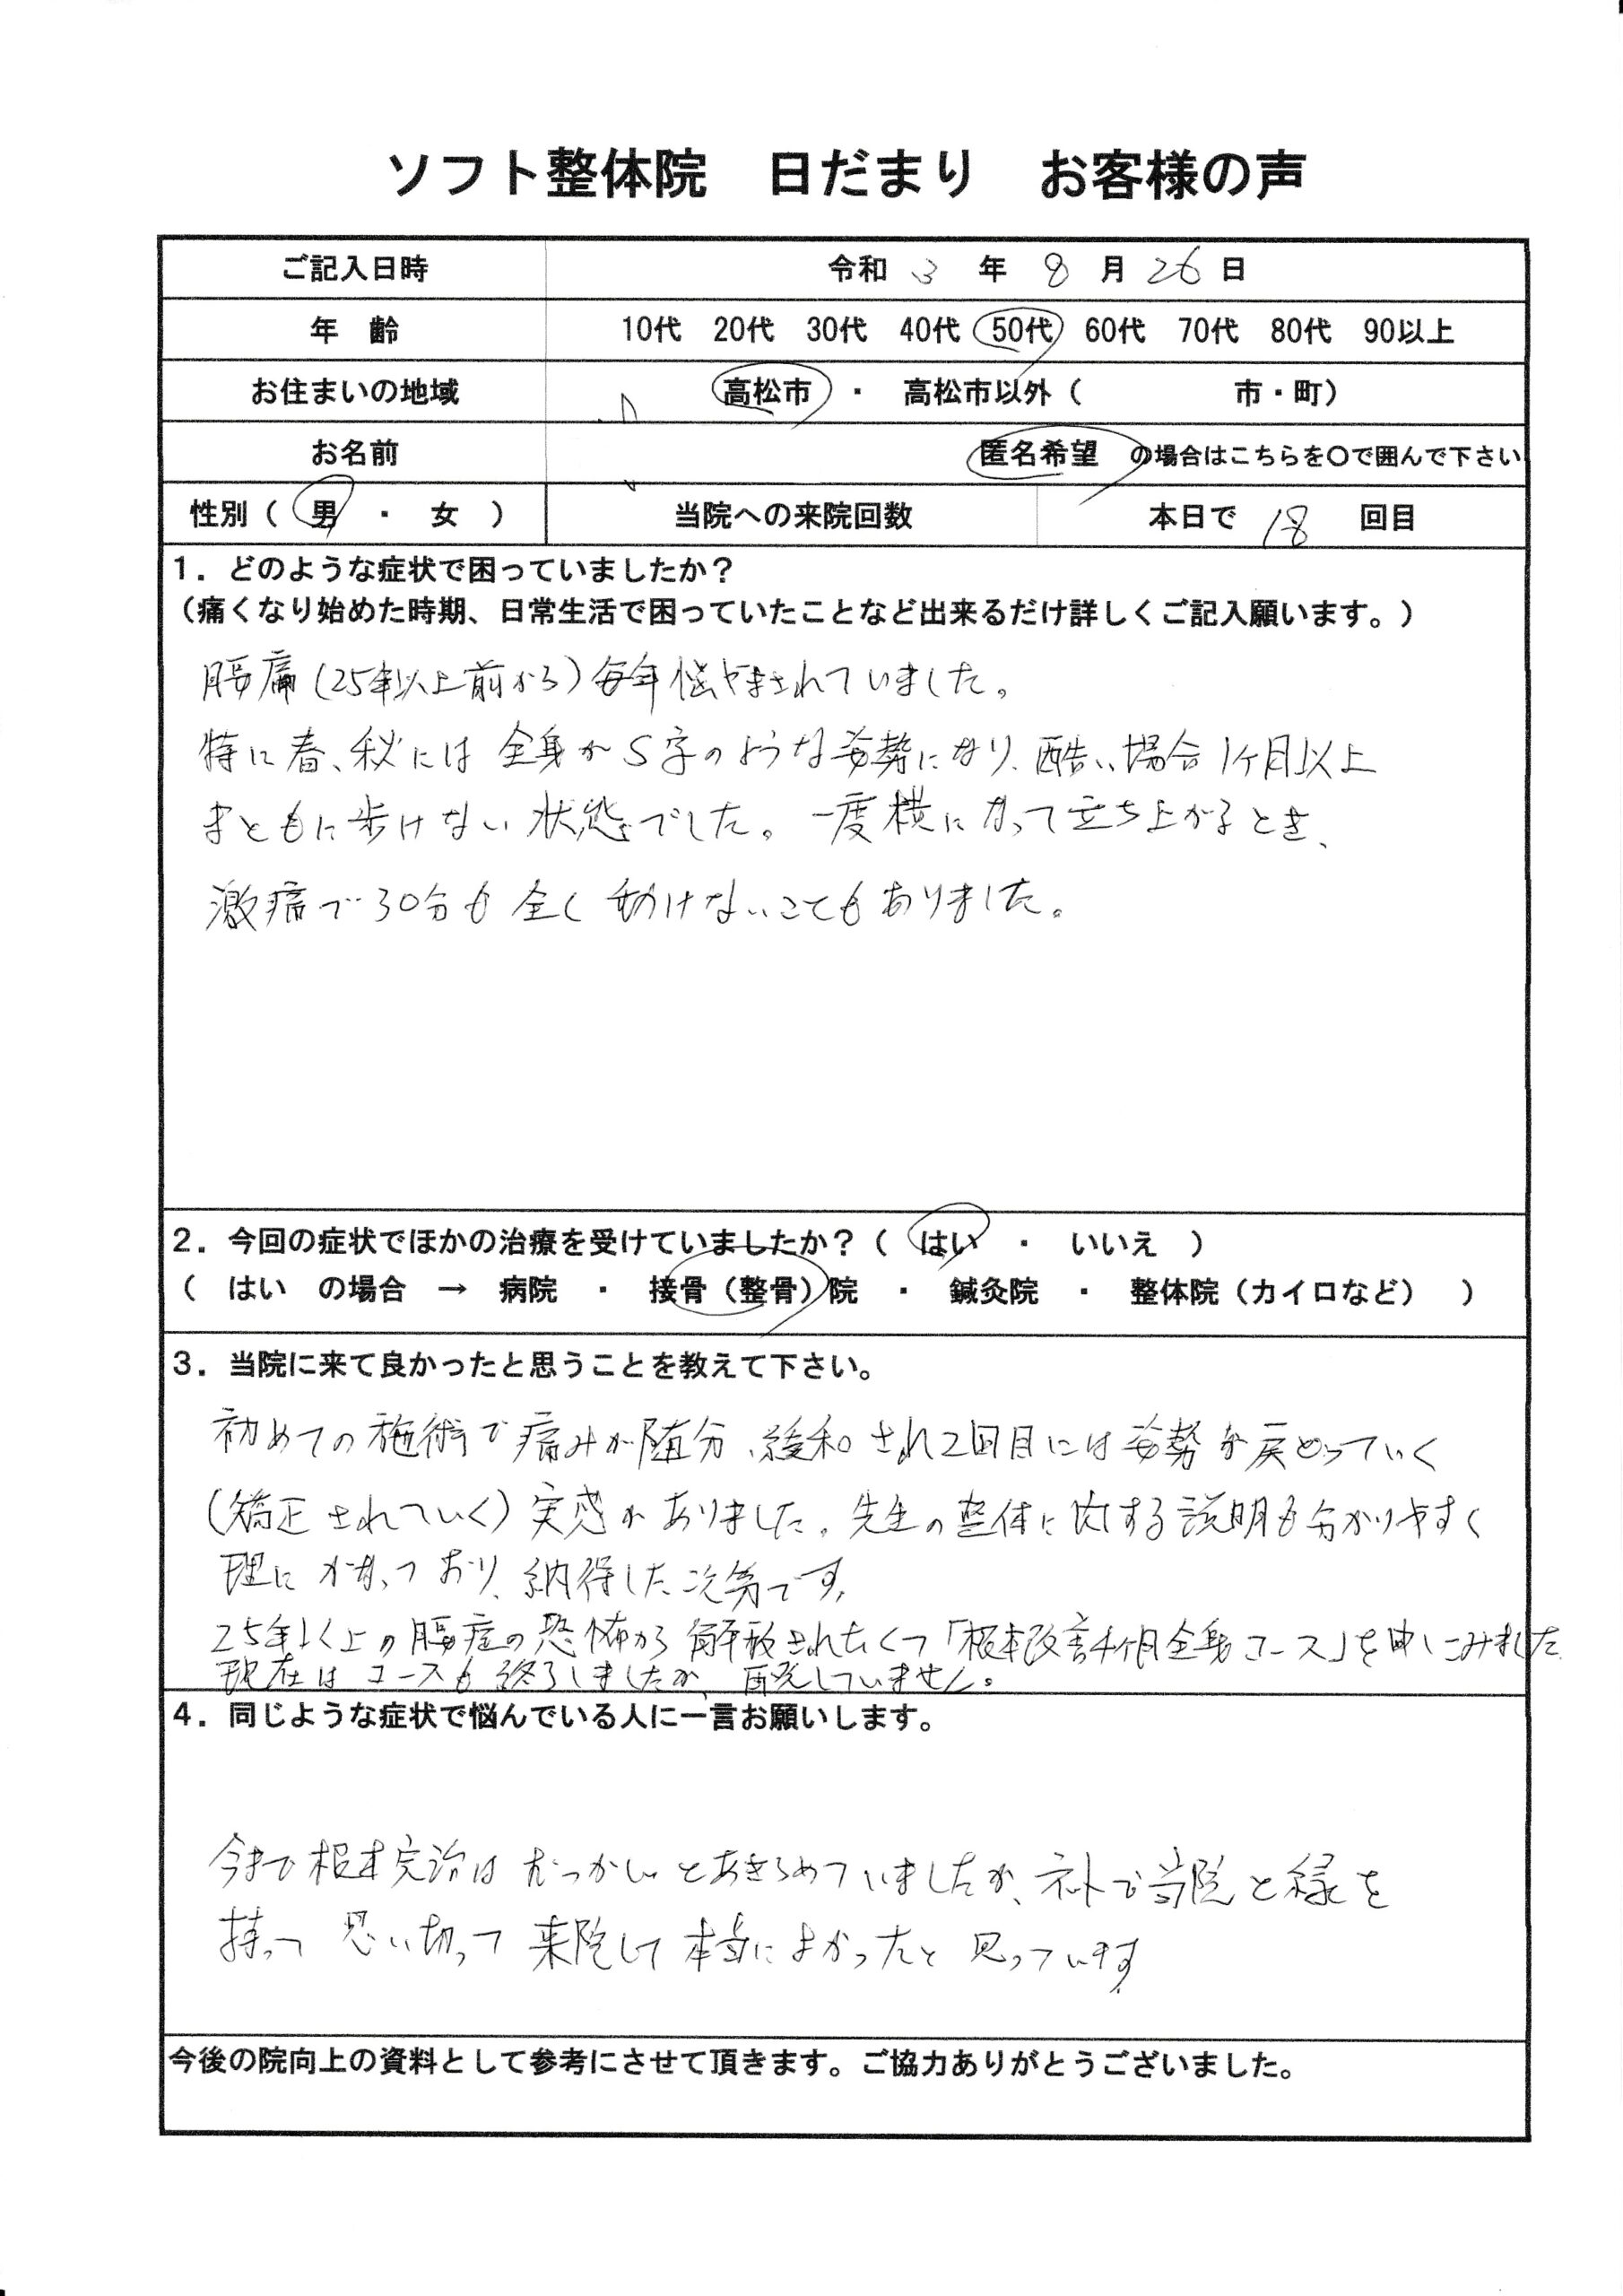 ソフト整体院　日だまり　お客様の声
ご記入日時　令和 3 年 8 月 26 日
年　齢　10代　20代　30代　40代　50代　60代　70代　80代　90以上
お住まいの地域　高松市　・　高松市以外（　　　　市・町）
お名前　匿名希望　の場合はこちらを〇で囲んで下さい
性別（　男　・　女　）　当院への来院回数　本日で 18 回目
１．どのような症状で困っていましたか？
（痛くなり始めた時期、日常生活で困っていたことなど出来るだけ詳しくご記入願います。）
腰痛（25年以上前から）毎年悩まされていました。
特に春、秋には全身がS字のような姿勢になり、酷い場合1ヶ月以上
まともに歩けない状態でした。一度横になって立ち上がるとき、
激痛で30分も全く動けないこともありました。
２．今回の症状でほかの治療を受けていましたか？（　はい　・　いいえ　）
（　はい　の場合　→　病院　・　接骨（整骨）院　・　鍼灸院　・　整体院（カイロなど）　）
３．当院に来て良かったと思うことを教えて下さい。
初めての施術で痛みが随分、緩和され2回目には姿勢が戻っていく
（矯正されていく）実感がありました。先生の整体に対する説明も分かりやすく
理にかなっており、納得した次第です。
25年以上の腰痛の恐怖から解放されたくて「根本改善4ヶ月全身コース」を申しこみました
現在はコースも終了しましたが、再発していません。
４．同じような症状で悩んでいる人に一言お願いします。
今まで根本完治はむつかしいとあきらめていましたが、ネットで当院と縁を
持って思い切って来院して本当によかったと思っています
今後の院向上の資料として参考にさせて頂きます。ご協力ありがとうございました。